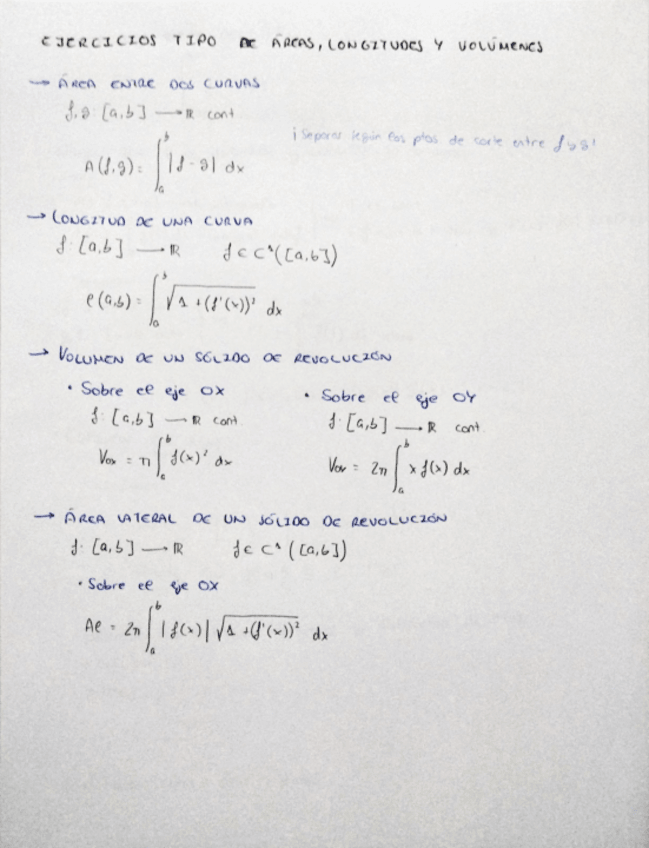 EJERCICIOS TIPO DE ÁREAS, LONGITUDES Y VOLÚMENES
→ ÁREA ENTRE DOS CURVAS
f, g: [a,b] → ℝ cont
¡Separar según los ptos de corte entre f y g!
A(f,g) = ∫_a^b |f - g| dx
→ LONGITUD DE UNA CURVA
f: [a,b] → ℝ f ∈ C¹([a,b])
ℓ(a,b) = ∫_a^b √(1 + (f'(x))²) dx
→ VOLUMEN DE UN SÓLIDO DE REVOLUCIÓN
· Sobre el eje OX
f: [a,b] → ℝ cont.
V_OX = π ∫_a^b f(x)² dx
· Sobre el eje OY
f: [a,b] → ℝ cont.
V_OY = 2π ∫_a^b x f(x) dx
→ ÁREA LATERAL DE UN SÓLIDO DE REVOLUCIÓN
f: [a,b] → ℝ f ∈ C¹([a,b])
· Sobre el eje OX
Aℓ = 2π ∫_a^b |f(x)| √(1 + (f'(x))²) dx